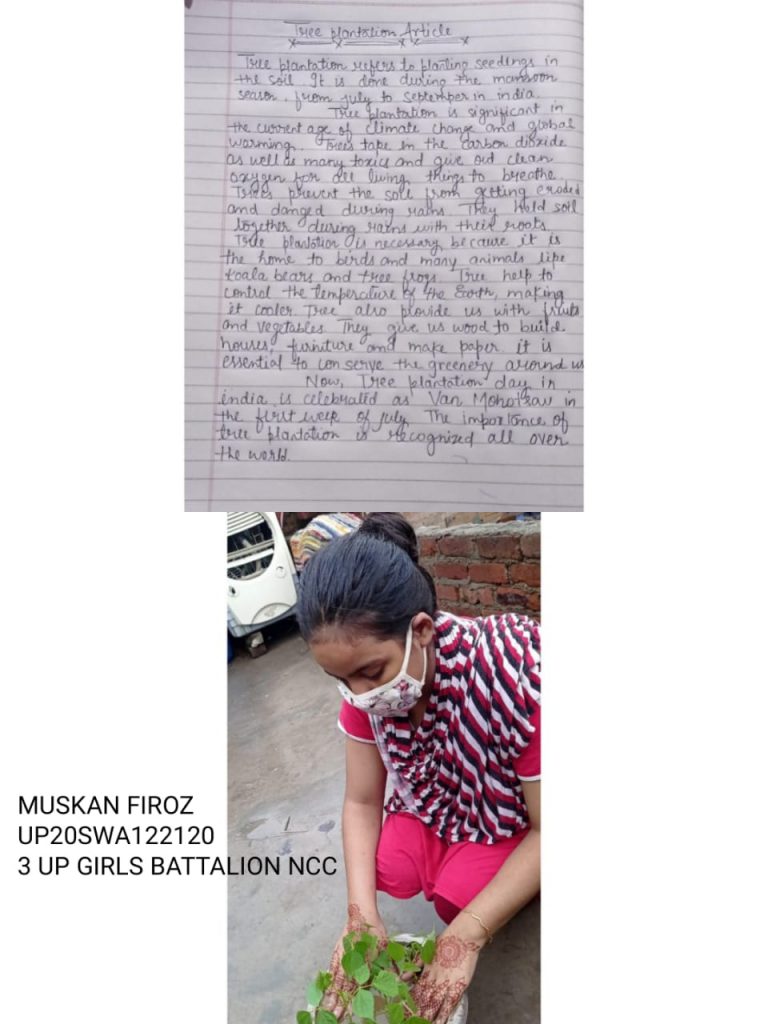 Tree plantation Article
Tree plantation refers to planting seedlings in
the soil. It is done during the mansoon
season, from july to september in india.
Tree plantation is significant in
the current age of climate change and global
warming. Trees tape in the carbon dioxide
as well as many toxics and give out clean
oxygen for all living things to breathe.
Trees prevent the soil from getting eroded
and danged during rains. They hold soil
together during rains with their roots.
Tree plantation is necessary because it is
the home to birds and many animals lipe
koala bears and tree frogs. Tree help to
control the temperature of the Earth, making
it cooler. Tree also plovide us with fruits
and vegetables. They give us wood to build
houses, furniture and make paper. it is
essential to conserve the greenery around us
Now, Tree plantation day in
india is celebrated as Van Mohotsav in
the first weep of july. The importance of
tree plantation is recognized all over
the world.
MUSKAN FIROZ
UP20SWA122120
3 UP GIRLS BATTALION NCC